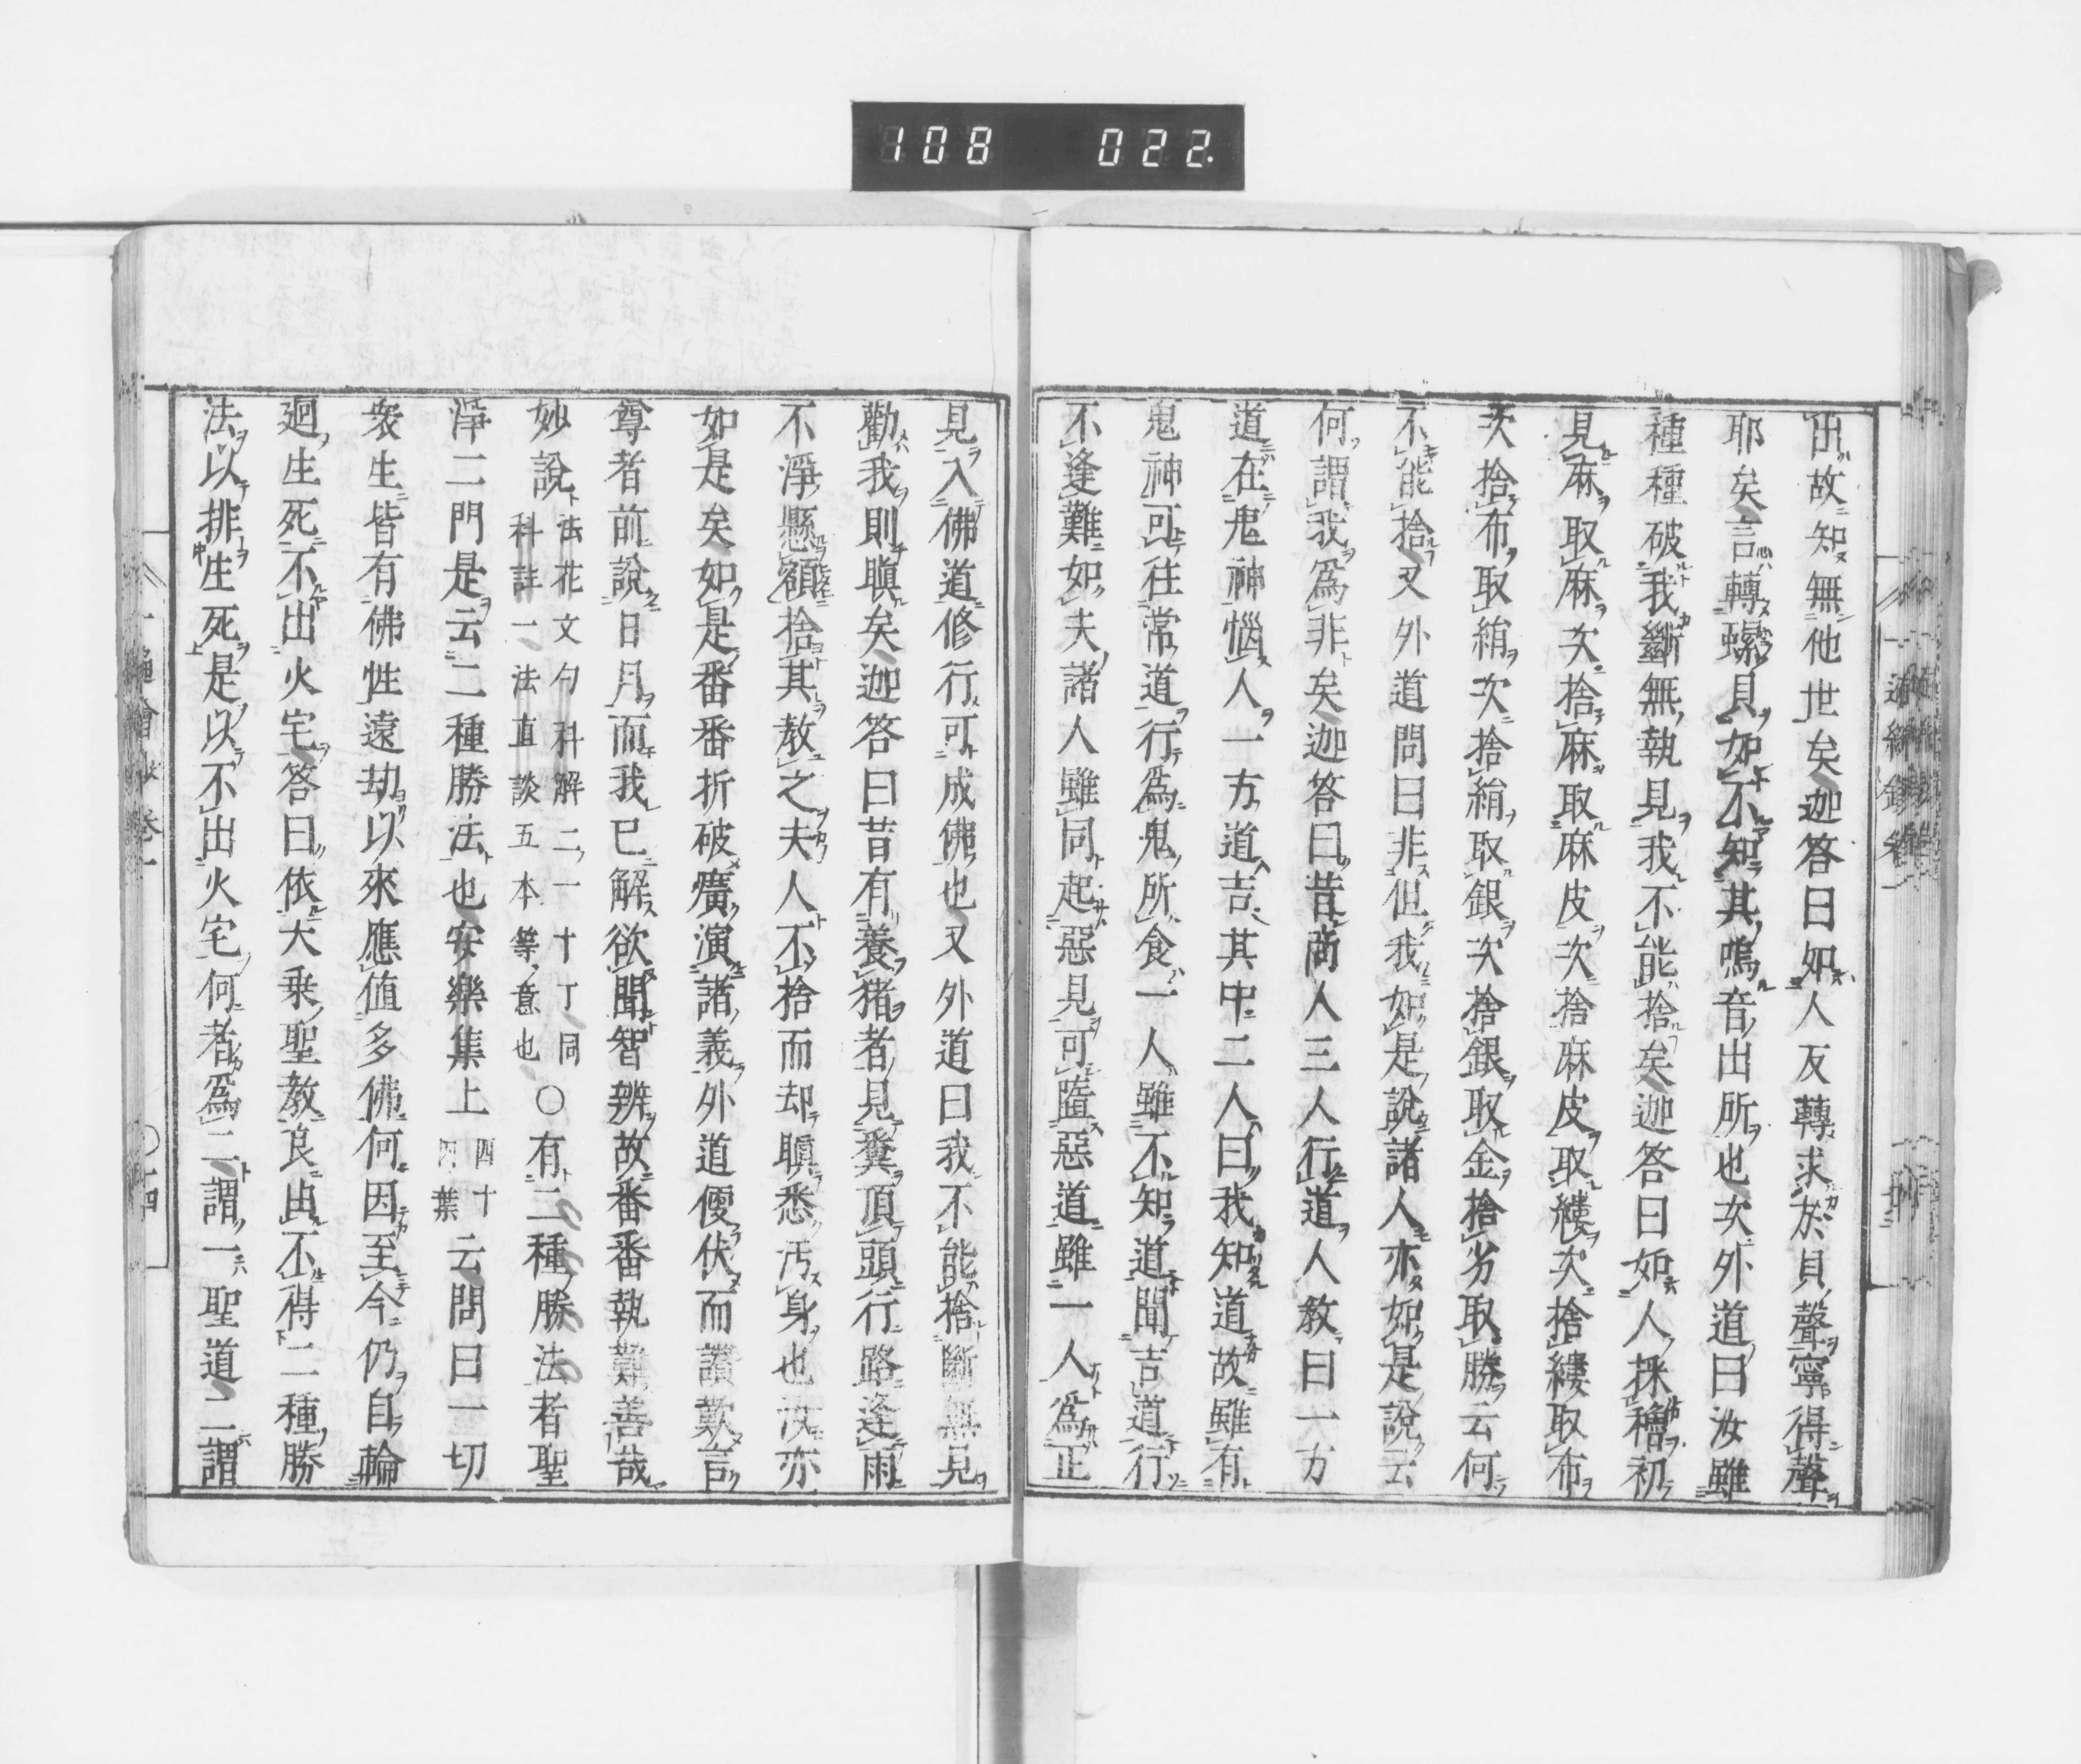 108 022
出故知無他世矣迦答曰如人反轉求於貝聲寧得聲
耶矣言轉螺貝如不知其鳴音出所也又外道曰汝雖
種種破我斷無執見我不能捨矣迦答曰如人採穭初
見麻取麻次捨麻取麻皮次捨麻皮取縷次捨縷取布
次捨布取絹次捨絹取銀次捨銀取金捨劣取勝云何
不能捨又外道問曰非但我如是說諸人亦如是說云
何謂我爲非矣迦答曰昔商人三人行道人教曰一方
道在鬼神惱人一方道吉其中二人曰我知道故雖有
鬼神可往常道行爲鬼所食一人雖不知道聞吉道行
不逢難如夫諸人雖同起惡見可墮惡道雖一人爲正
見入佛道修行可成佛也又外道曰我不能捨斷無見
勸我則瞋矣迦答曰昔有養猪者見糞頂頭行路逢雨
不淨懸額捨其敎之夫人不捨而却瞋悉汚身也汝亦
如是矣如是番番折破廣演諸義外道便伏而讚歎言
尊者前說日月而我已解欲聞智辨故番番執難善哉
妙說法花文句科解二一十丁同科註一法直談五本等意也○有二種勝法者聖
淨二門是云二種勝法也安樂集上四十四葉云問曰一切
衆生皆有佛性遠劫以來應値多佛何因至今仍自輪
廻生死不出火宅答曰依大乗聖教良由不得二種勝
法以排生死是以不出火宅何者爲二謂一聖道二謂